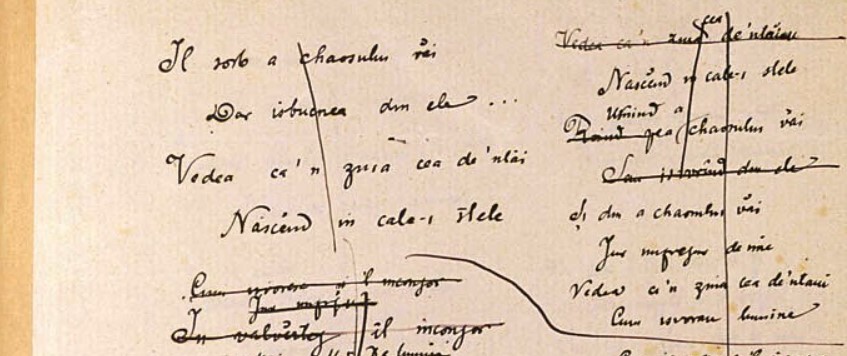 Il sorb a chaosului văi
Dar isbucnea din ele ...
Vedea ca'n ziua cea de'ntăi
Născînd in cale-i stele
Cum isvorau il inconjor
Jur împrejur
In valvărtej il inconjor
De lumini
Vedea ca'n ziua cea de'ntăiu
Născînd in cale-i stele
a chaosului văi
Sau isvorînd din ele
Și din a chaosului văi
Jur împrejur de mine
Vedea ca'n ziua cea de'ntaiu
Cum isvorau lumine